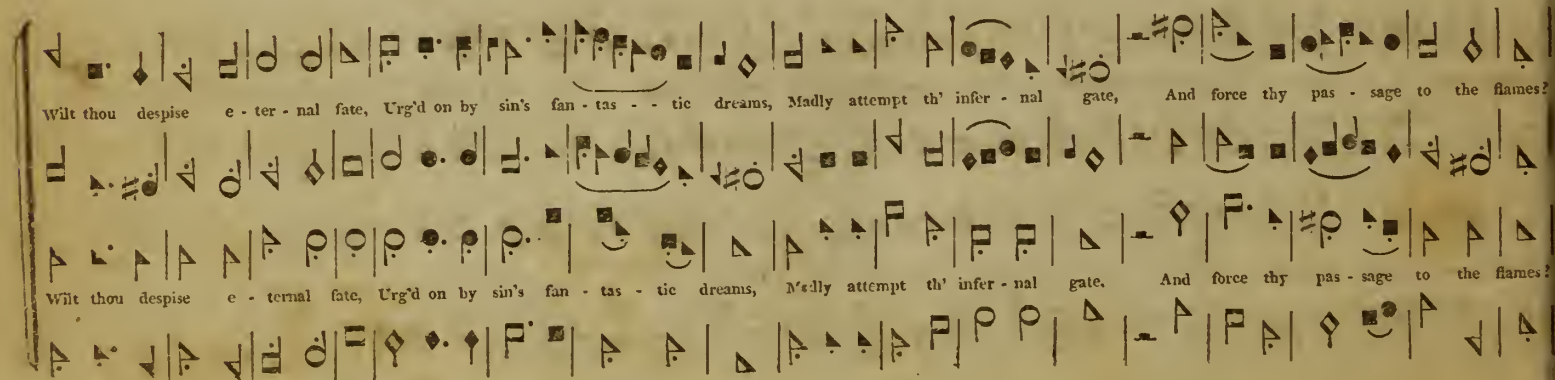 Wilt thou despise e - ter - nal fate, Urg'd on by sin's fan - tas - - tic dreams, Madly attempt th' infer - nal gate, And force thy pas - sage to the flames?
Wilt thou despise e - ternal fate, Urg'd on by sin's fan - tas - tic dreams, Madly attempt th' infer - nal gate. And force thy pas - sage to the flames?